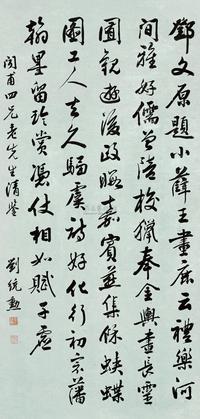 鄧文原題小薛王畫鹿云禮樂河
間雅好儒曾陪校獵奉金輿晝長靈
囿觀遊後政暇嘉賓燕集餘蛺蝶
圖工人去久騶虞詩好化行初宗藩
翰墨留珍賞憑仗相如賦子虛
甫四兄老先生清鑒
劉統勳